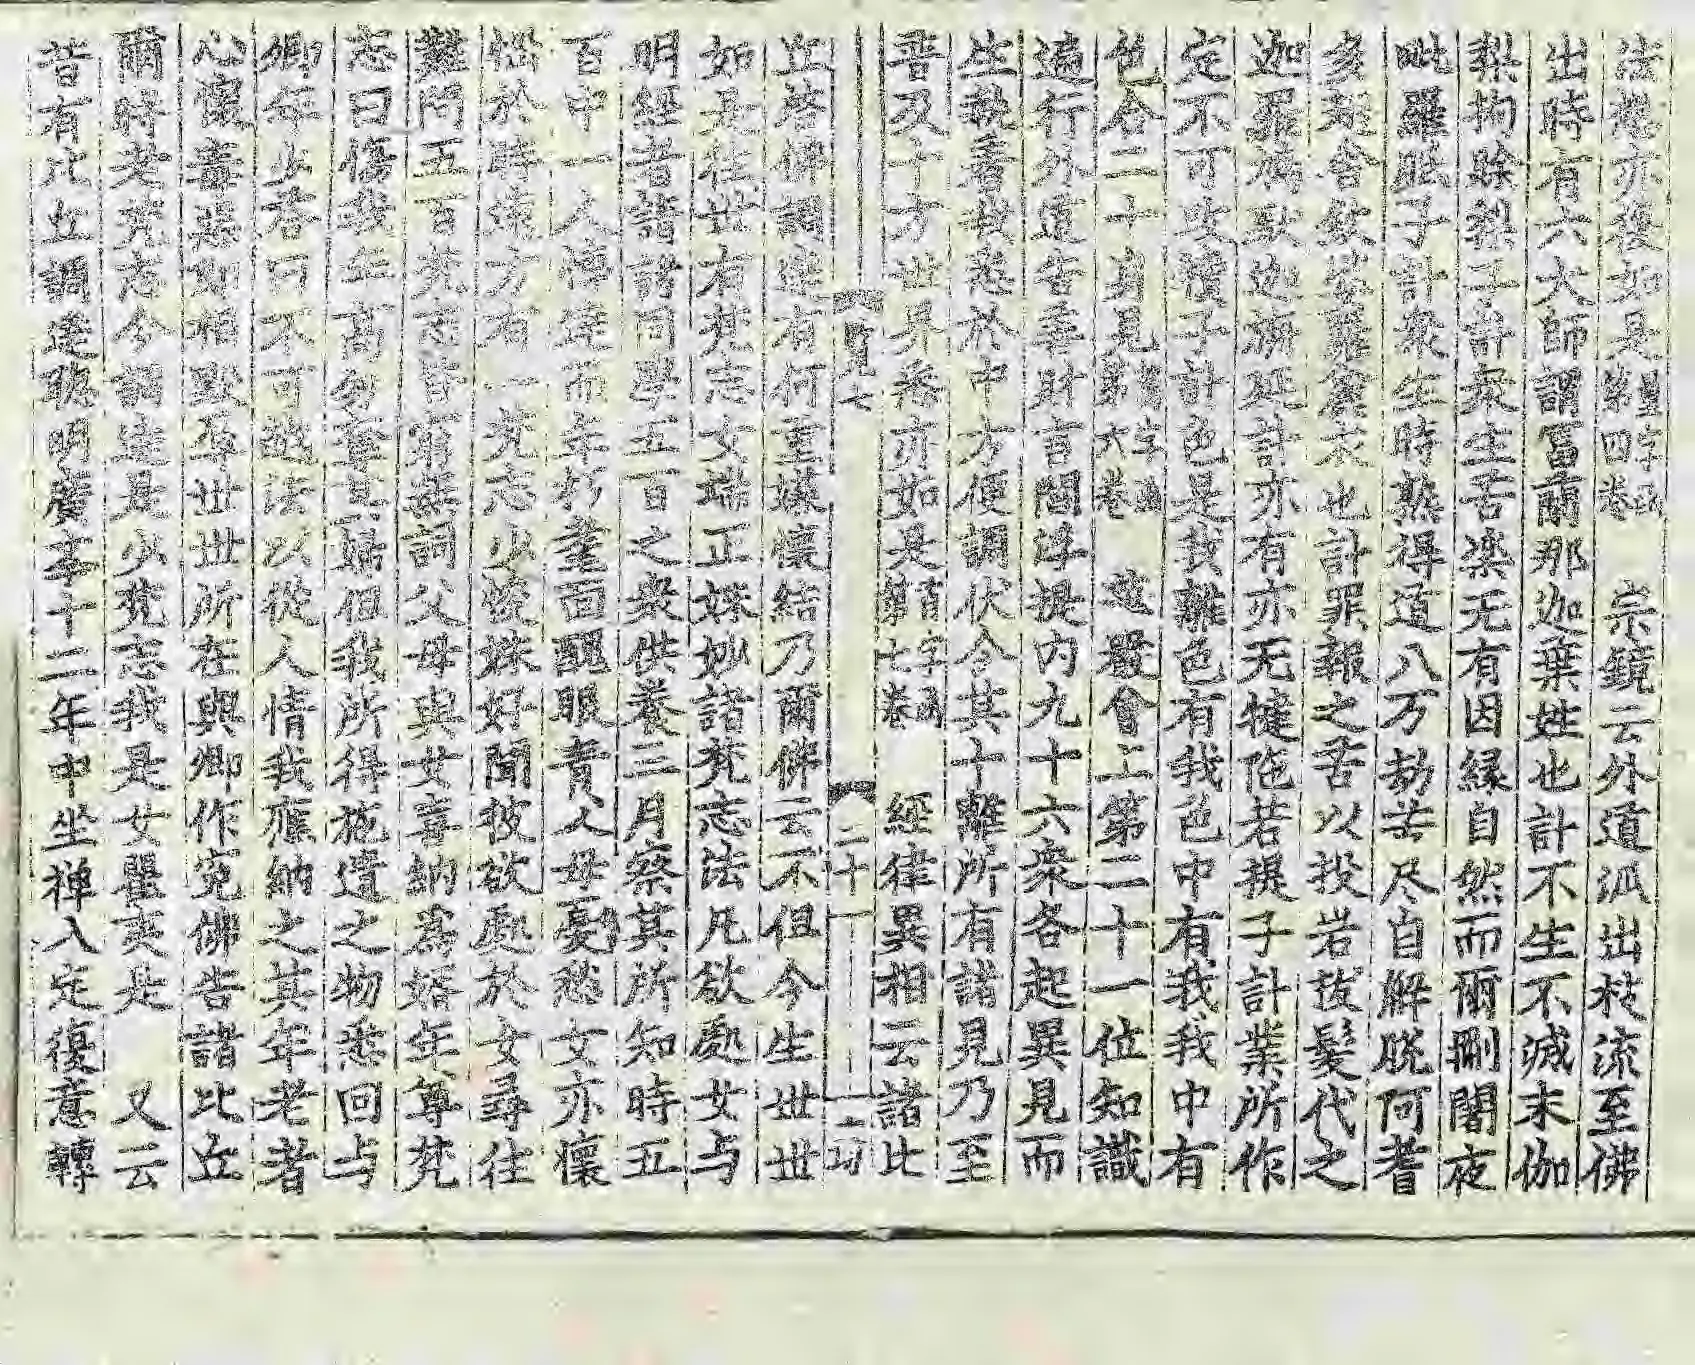 法想亦復如是聖字函第四卷 宗鏡云外道派出枝流至佛
出時有六大師謂富蘭那迦葉姓也計不生不滅末伽
梨拘賖梨子計衆生苦楽无有因縁自然而爾刪闍夜
毗羅胝子計衆生時熟得道八万劫苦尽自解脱阿耆
多翅舍欽婆羅麁衣也計罪報之苦以投岩拔髮代之
迦羅鳩馱迦旃延計亦有亦无犍陁若提子計業所作
定不可改犢子計色是我離色有我色中有我我中有
色合二十身見字函第六卷 嚴會上第二十一位知識
遍行外道告善財言閻浮提内九十六衆各起異見而
生執着我悉於中方便調伏令其十離所有諸見乃至
普及十方世界悉亦如是字函第七卷 經律異相云諸比
二十一
丘啓佛調達有何重嫌懐結乃爾佛云不但今生世世
如是往世有梵志女端正姝妙諸梵志法凡欲處女与
明經者諸同學五百之衆供養三月察其所知時五
百中一人博達而年朽耄面醜眼青父母憂愁女亦懷
惱於時遠方有一梵志少姿姝好聞彼欲處於女尋往
難問五百梵志皆窮無詞父母與女喜納為婿年尊梵
志曰傷我年高勿奪其婦但我所得施遺之物悉回与
卿年少答曰不可越法以從人情我應納之其年老者
心懷毒惡則相默辱世世所在與卿作寃佛告諸比丘
爾時老梵志今調達是少梵志我是女瞿夷是 又云
昔有比丘調達聡明廣學十二年中坐禅入定復意轉